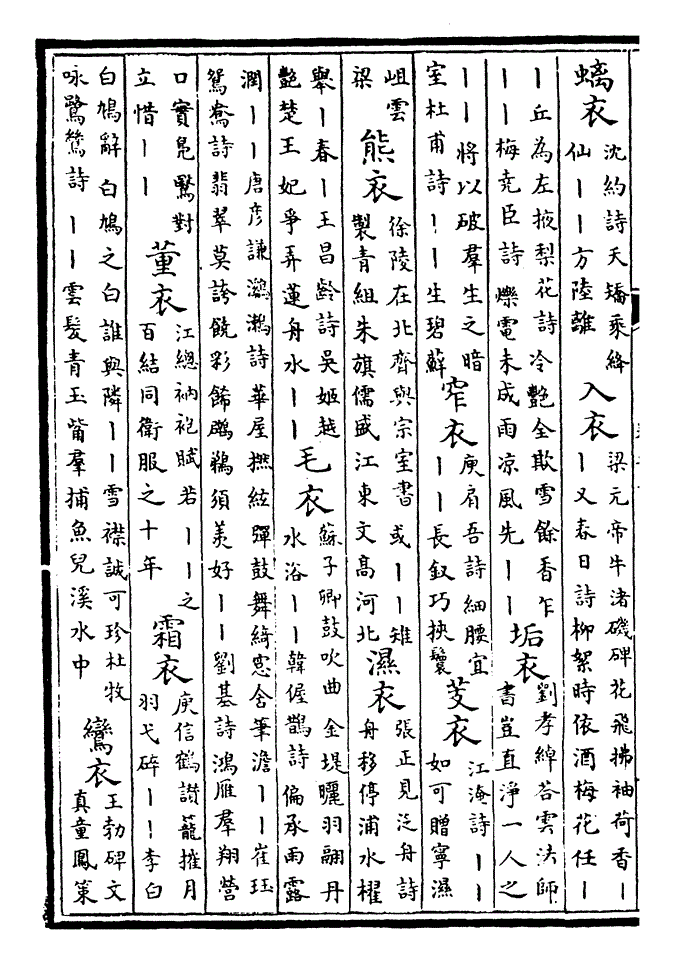 螭衣
沈約詩天矯乘絳
仙丨丨方陸離
入衣
梁元帝牛渚磯碑花飛拂袖荷香丨
丨又春日詩柳絮時依酒梅花任丨
丨丘為左掖梨花詩冷艷全欺雪餘香乍
丨丨梅堯臣詩爍電未成雨凉風先丨丨
垢衣
劉孝綽荅雲法師
書豈直淨一人之
丨丨將以破羣生之暗
室杜甫詩丨丨生碧蘚
窄衣
庾肩吾詩細腰宜
丨丨長釵巧挾鬟
芰衣
江淹詩丨丨
如可贈寧濕
岨雲
梁
熊衣
徐陵在北齊與宗室書或丨丨雉
製青組朱旗儒盛江東文高河北
濕衣
張正見泛舟詩
舟移停浦水櫂
舉丨春丨王昌齡詩吳姬越
艷楚王妃爭弄蓮舟水丨丨
毛衣
蘇子卿鼓吹曲金堤曬羽翮丹
水浴丨丨韓偓鵲詩偏承雨露
潤丨丨唐彥謙鸂鶒詩華屋撫絃彈鼓舞綺窻含筆澹丨丨崔珏
鴛鴦詩翡翠莫誇饒彩飾鸊鷉須羡好丨丨劉基詩鴻雁羣翔營
口實鳧鷖對
立惜丨丨
董衣
江總衲袍賦若丨丨之
百結同衛服之十年
霜衣
庾信鶴讚籠摧月
羽弋碎丨丨李白
白鳩辭白鳩之白誰與隣丨丨雪襟誠可珍杜牧
咏鷺鷥詩丨丨雲髮青玉觜羣捕魚兒溪水中
鸞衣
王勃碑文
真童鳳策